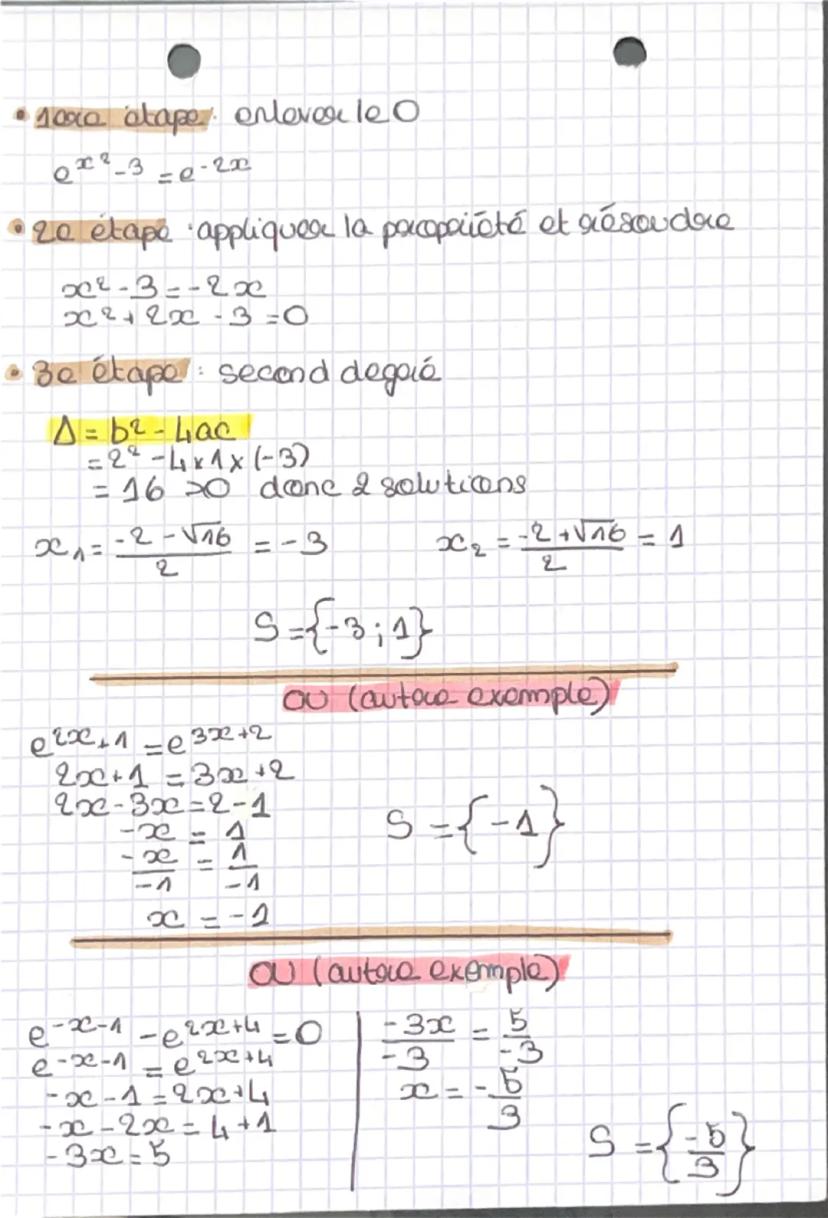 • 1ère étape : enlever le 0
e^{x²-3} = e^{-2x}
• 2e étape : appliquer la propriété et résoudre
x² - 3 = -2x
x² + 2x - 3 = 0
• 3e étape : second degré
Δ = b² - 4ac
= 2² - 4 x 1 x (-3)
= 16 >0 donc 2 solutions
x₁ = (-2 - √16)/2 = -3    x₂ = (-2 + √16)/2 = 1
S = {-3 ; 1}
OU (autre exemple)
e^{2x+1} = e^{3x+2}
2x+1 = 3x+2
2x - 3x = 2 - 1
-x = 1
-x/-1 = 1/-1
x = -1
S = {-1}
OU (autre exemple)
e^{-x-1} - e^{2x+4} = 0
e^{-x-1} = e^{2x+4}
-x - 1 = 2x+4
-x - 2x = 4 + 1
-3x = 5
-3x/-3 = 5/-3
x = -5/3
S = {-5/3}